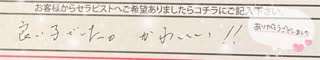 お客様からセラピストへご希望ありましたらコチラにご記入下さい。
良い子でした。かわいい!!
ありがとうございました